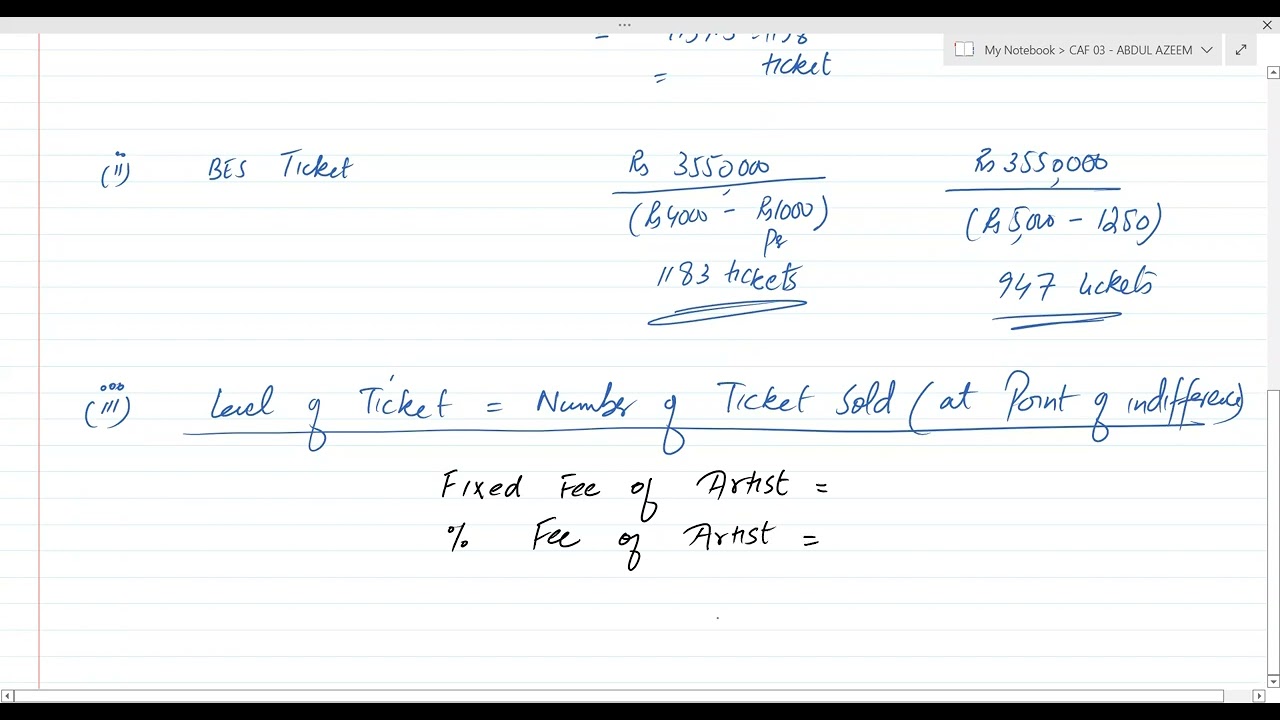 ...
My Notebook > CAF 03 - ABDUL AZEEM
= ticket
(ii) BES Ticket Rs 3550,000 Rs 3550,000
(Rs 4000 - Rs 1000) (Rs 5,000 - 1250)
1183 tickets 947 tickets
(iii) Level of Ticket = Number of Ticket Sold (at Point of indifference)
Fixed Fee of Artist =
% Fee of Artist =